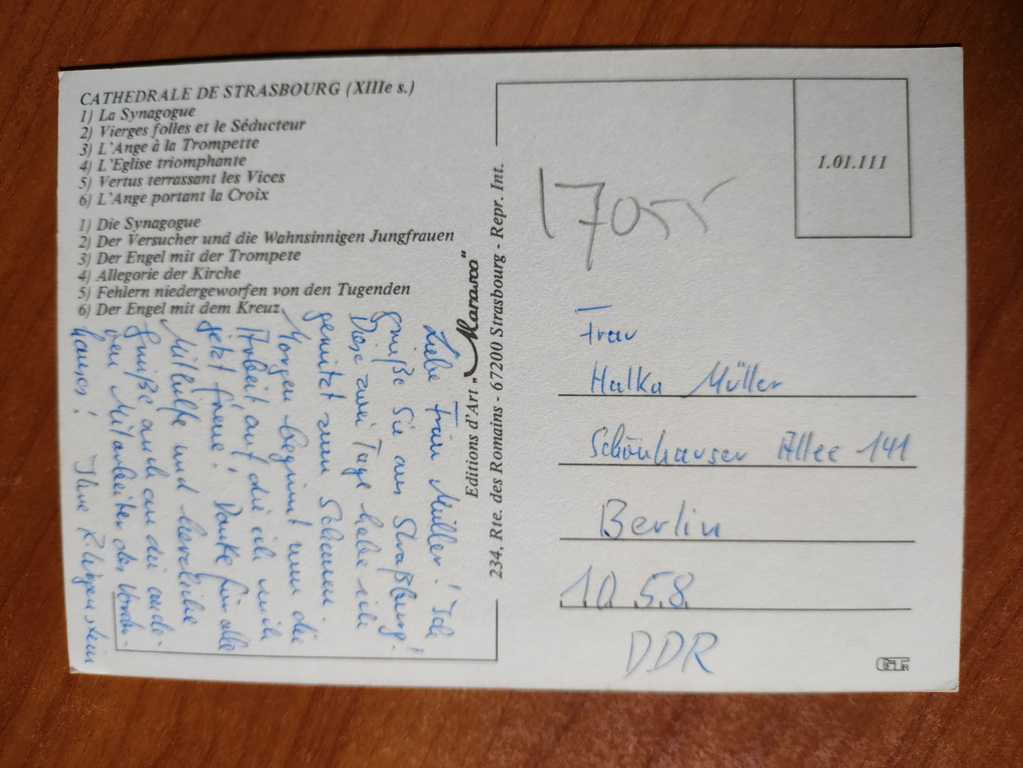 CATHEDRALE DE STRASBOURG (XIIIe s.)
1) La Synagogue
2) Vierges folles et le Séducteur
3) L'Ange à la Trompette
4) L'Eglise triomphante
5) Vertus terrassant les Vices
6) L'Ange portant la Croix
1) Die Synagogue
2) Der Versucher und die Wahnsinnigen Jungfrauen
3) Der Engel mit der Trompete
4) Allegorie der Kirche
5) Fehlern niedergeworfen von den Tugenden
6) Der Engel mit dem Kreuz
Liebe Frau Müller! Ich
grüße Sie aus Straßburg!
Diese zwei Tage habe ich
genutzt zum Schauen.
Morgen beginnt nun die
Arbeit, auf die ich mich
jetzt freue! Danke für alle
Mithilfe und herzliche
Grüße auch an die ande-
ren Mitarbeiter des
hauses! Ihre
Editions d'Art "Marasco"
234, Rte. des Romains - 67200 Strasbourg - Repr. Int.
1.01.111
17055
Frau
Halka Müller
Schönhauser Allee 141
Berlin
1058
DDR